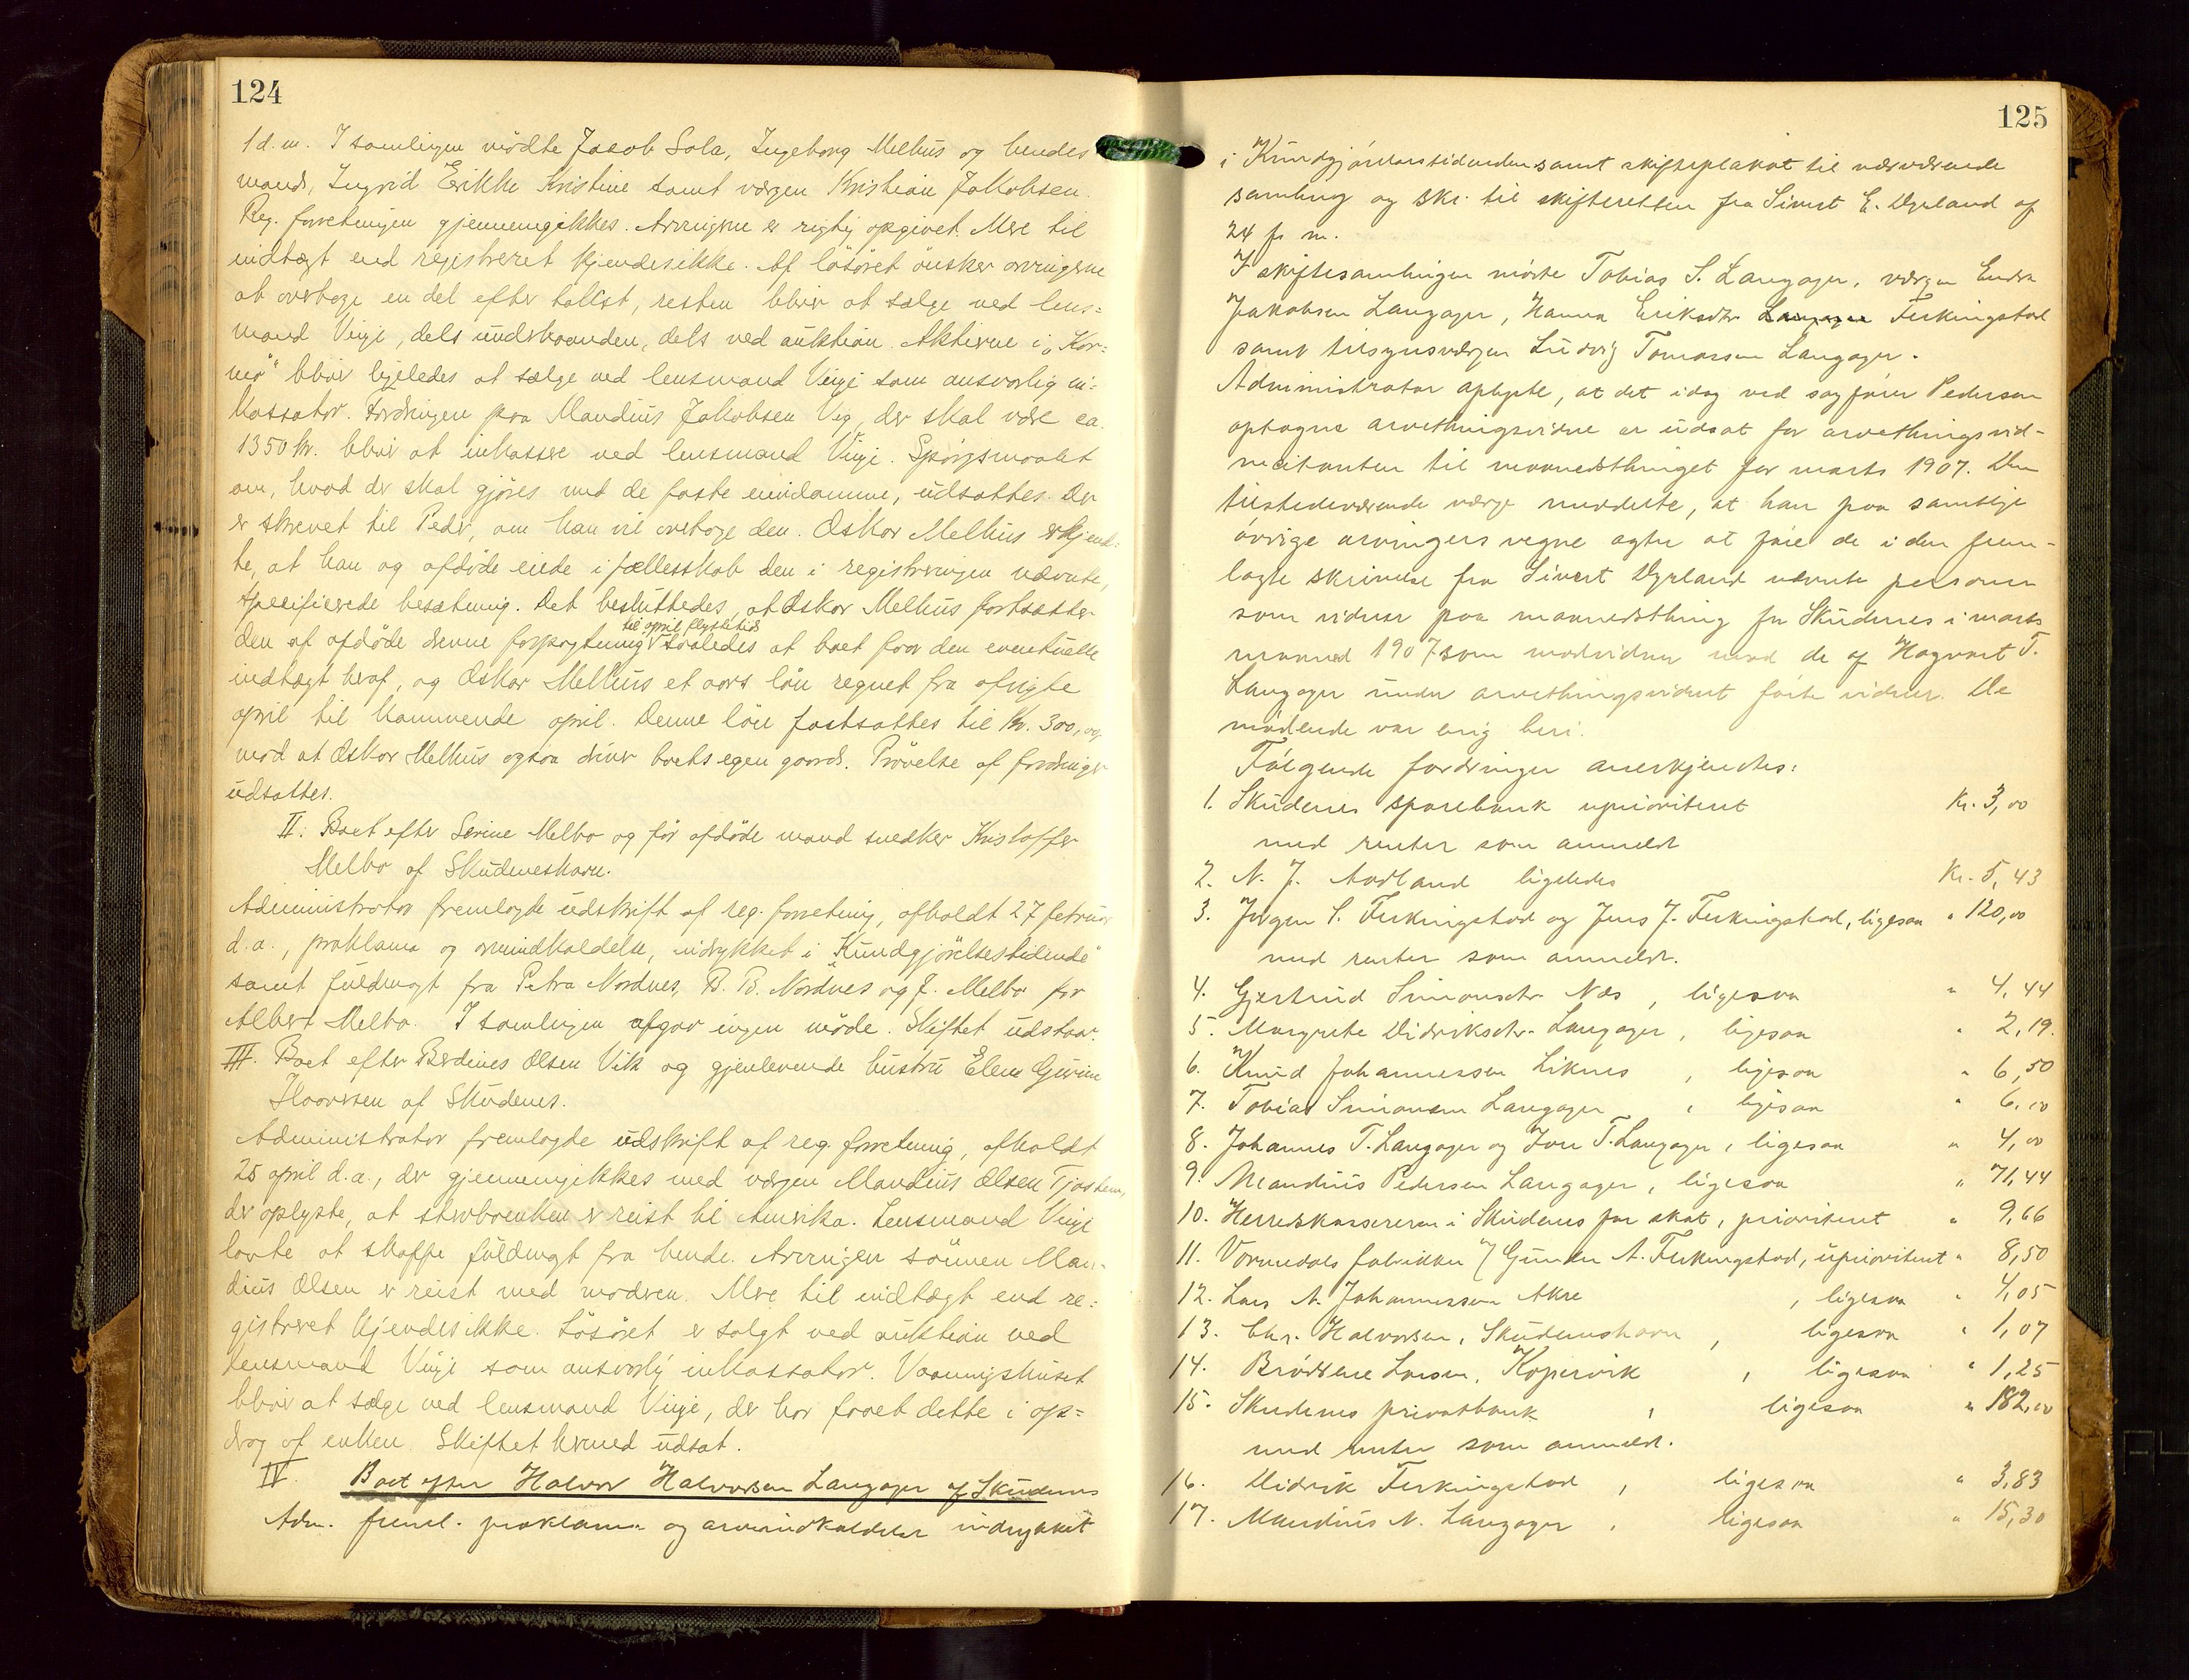 124
1 d. m. I samlingen mödte Jacob Sola, Ingeborg Melhus og hendes
mand, Ingrid Erikke Kristine samt vergen Kristian Jakobsen.
Reg. forretningen gjennemgikkes. Arvingerne er rigtig opgivet. Mere til
indtægt end registreret kjendes ikke. Af lösöret önsker arvingerne
at overtage en del efter takst, resten blir at sælge ved lens=
mand Vinje, dels underhaanden, dels ved auktion. Aktierne i "Kar=
mö" blir ligeledes at sælge ved lensmand Vinje som ansvarlig in=
kassator. Fordringen paa Mandius Jakobsen Veg, der skal være ca.
1350 kr. blir at inkassere ved lensmand Vinje. Spörgsmaalet
om, hvad der skal gjöres med de faste eiendomme, udsattes. Der
er skrevet til Peder, om han vil overtage den. Oskar Melhus erkjend=
te, at han og afdöde eiede i fællesskab den i registreringen nævnte,
specifierede besætning. Det besluttedes, at Oskar Melhus fortsætter
til april flyttetid
den af afdöde drevne forpagtning saaledes at boet faar den eventuelle
indtægt heraf, og Oskar Melhus et aars lön regnet fra afvigte
april til kommende april. Denne lön fastsattes til Kr. 300,00
mod at Oskar Melhus ogsaa driver boets egen gaard. Prövelse af fordringer
udsattes.
II. Boet efter Serine Melbo og för afdöde mand snedker Kristoffer
Melbo af Skudeneshavn.
Administrator fremlagte udskrift af reg. forretning, afholdt 27 februar
d. a., proklama og arveindkaldelse, indrykket i "Kundgjörelsestidende"
samt fuldmagt fra Petra Nordnes, B. B. Nordnes og J. Melbo for
Albert Melbo. I samlingen afgav ingen möde. Skiftet udstaar.
III. Boet efter Berdines Olsen Vik og gjenlevende hustru Elene Gurine
Haavrsen af Skudenes.
Administrator fremlagde udskrift af reg. forretning, afholdt
25 april d. a., der gjennemgikkes med vergen Mandius Olsen Tjøstem,
der oplyste, at sterboenken er reist til Amerika. Lensmand Vinje
lovte at skaffe fuldmagt fra hende. Arvingen sönnen Man=
dius Olsen er reist med modren. Mere til indtægt end re=
gistreret kjendes ikke. Lösöret er solgt ved auktion ved
lensmand Vinje som ansvarlig inkassator. Vaaningshuset
blir at sælge ved lensmand Vinje, der har faaet dette i op=
drag af enken. Skiftet hermed udsat.
IV. Boet efter Halvor Halvorsen Langager af Skudenes
Adm. freml. proklama og arveindkaldelse indrykket
125
i Kundgjörelsestidenden samt skifteplakat til nærværende
samling og skr. til skifteretten fra Sivert E. Dyrland af
24 f. m.
I skiftesamlingen mödte Tobias S. Langager, vergen Endre
Jakobsen Langager, Hanna Eriksdtr Langager Ferkingstad
samt tilsynsvergen Ludvig Tomassen Langager.
Administrator oplyste, at det idag ved sagförer Pedersen
optagne arvethingsvidne er udsat for arvethingsvid-
necitanten til maanedsthinget for marts 1907. Den
tilstedeværende verge meddelte, at han paa samtlige
övrige arvingers vegne agter at före de i den frem-
lagte skrivelse fra Sivert Dyrland nævnte personer
som vidner paa maanedsthing for Skudenes i marts
maaned 1907 som modvidner mod de af Hagvart T.
Langager under arvethingsvidnet förte vidner. De
mödende var enig heri.
Fölgende fordringer anerkjendtes:
1. Skudenes sparebank uprioritert Kr. 3,00
med renter som anmeldt
2. N. J. Aadland ligeledes Kr. 5,43
3. Jørgen S. Ferkingstad og Jens J. Ferkingstad, ligesaa " 120,00
med renter som anmeldt.
4. Gjertrud Simonsdtr. Næs, ligesaa " 4,44
5. Margrete Didriksdtr. Langager, ligesaa " 2,19.
6. Knud Johannessen Liknes, ligesaa " 6,50
7. Tobias Simonsen Langager, ligesaa " 6,00
8. Johannes T. Langager og Iver T. Langager, ligesaa " 4,00
9. Mandius Pedersen Langager, ligesaa " 71,44
10. Herredskassereren i Skudenes for skat, prioritert " 9,66
11. Vormedals fabrikker v/ Gunder A. Ferkingstad, uprioritert " 8,50
12. Lars A. Johannessen Akre, ligesaa " 4,05
13. Chr. Halvorsen, Skudeneshavn, ligesaa " 1,07
14. Brödrene Larsen, Kopervik, ligesaa " 1,25
15. Skudenes privatbank, ligesaa " 182,00
med renter som anmeldt.
16. Didrik Ferkingstad, ligesaa " 3,83
17. Mandius N. Langager, ligesaa " 15,30